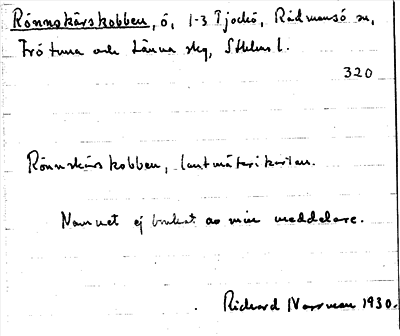 Rönnskärskobben, ö, 1-3 Tjockö, Rådmansö sn,
Frötuna och Länna skg, Sthlms l.
320
Rönnskärs kobben, lantmäterikartan.
Namnet ej brukat av min meddelare.
Rickard 1930.